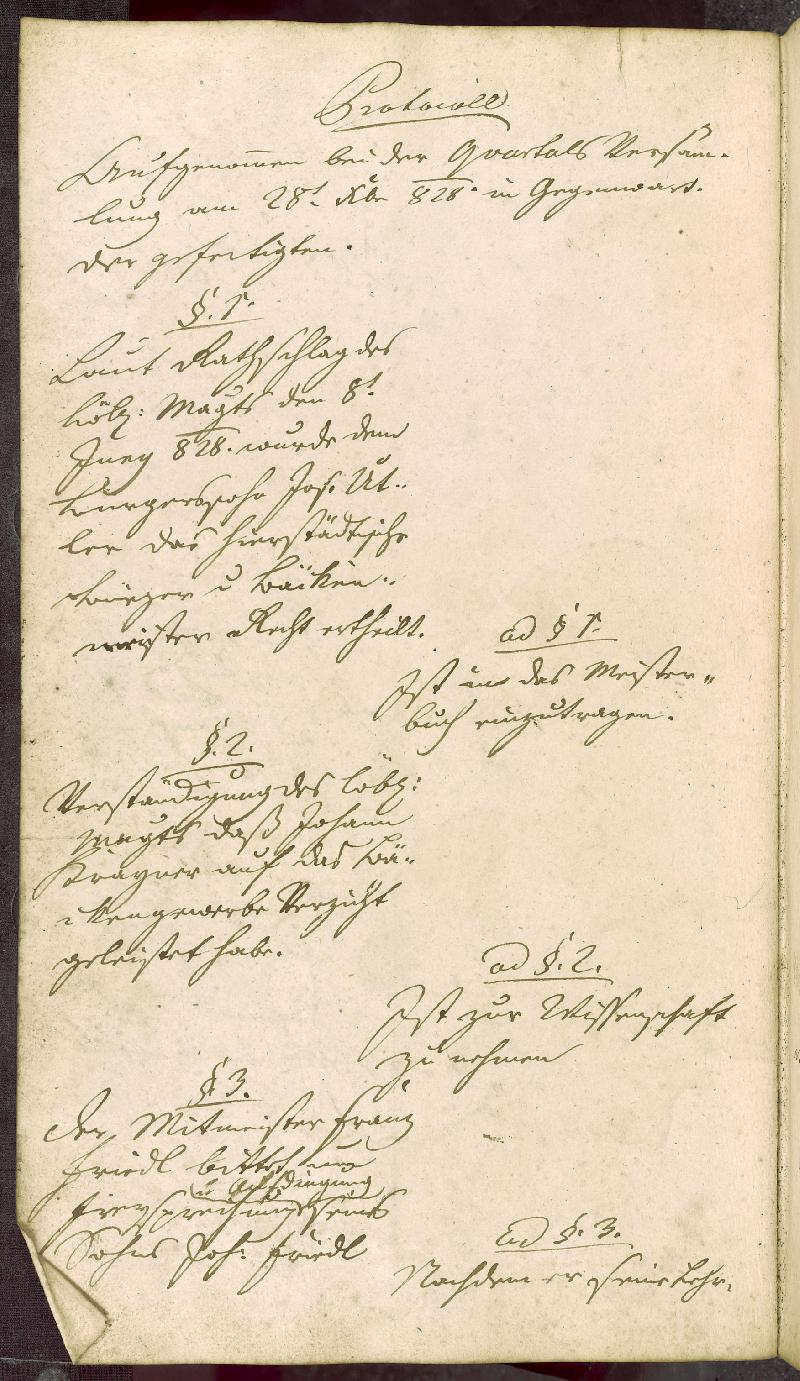 Protocoll
Aufgenom̄en bei der Quartals Versam̄-
lung am 28t Xbr 828. in Gegenwart
der gefertigten.
§. 1.
Laut Rathschlag des
löbl: Magts den 8t
Juny 828. wurde dem
Burgerssohn Jos. Ut-
ler das hierstädtische
Bürger u Bäcken-
meister Recht ertheilt.
ad § 1.
Ist in das Meister-
buch einzutragen.
§. 2.
Verständigung des löbl:
Magts daß Johann
Krayner auf das Bä-
ckengewerbe Verzicht
geleistet habe.
ad §. 2.
Ist zur Wissenschaft
zu nehmen
§ 3.
Der Mitmeister Franz
Friedl bittet um
u Aufdingung
Freysprechung seines
Sohns Joh: Friedl
ad §. 3.
Nachdem er seine Lehr-